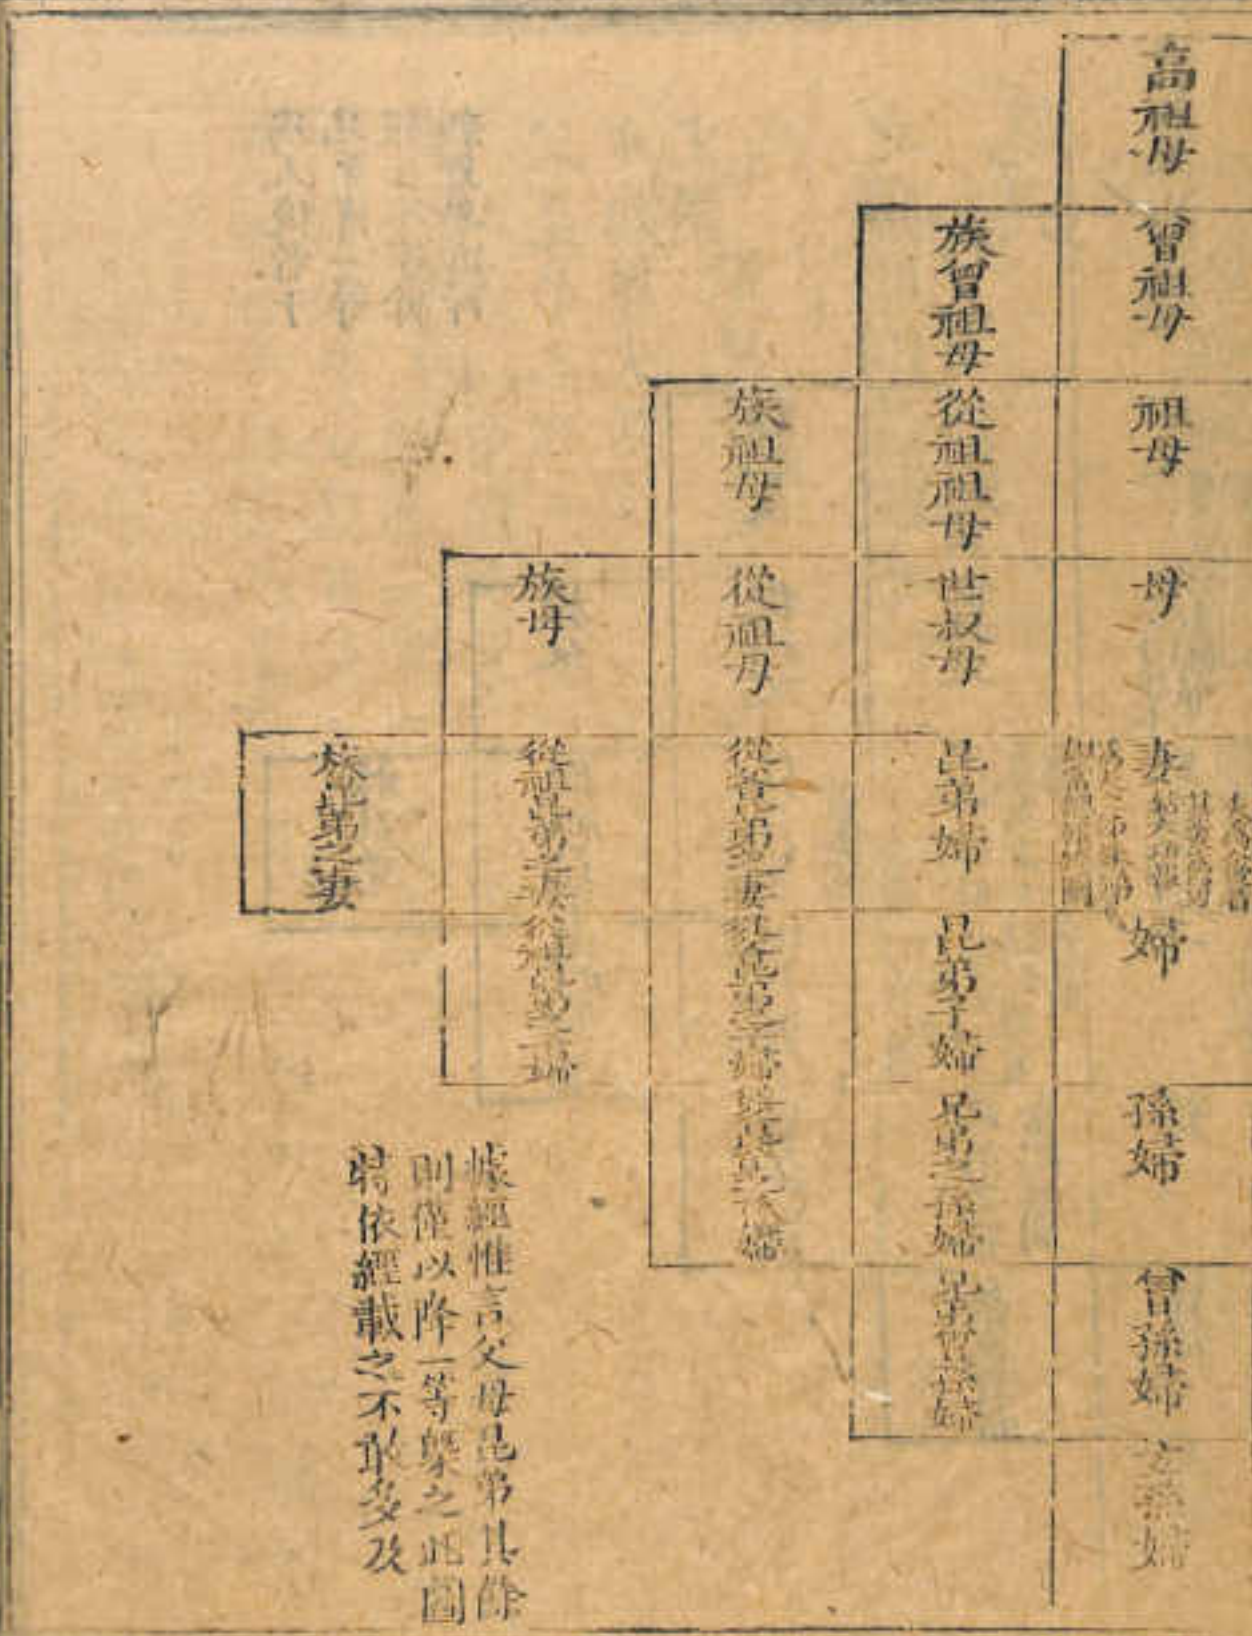 高祖母
曾祖母
祖母
母
妻
婦
孫婦
曾孫婦
玄孫婦
族曾祖母
從祖祖母
世叔母
昆弟婦
昆弟子婦
昆弟之孫婦
昆弟曾孫婦
族祖母
從祖母
從昆弟之妻
從昆弟之子婦
族母
從祖昆弟之妻
從祖昆弟之子婦
族昆弟之妻
據經惟言父母昆弟其餘
則僅以降一等槩之此圖
特依經載之不敢多及